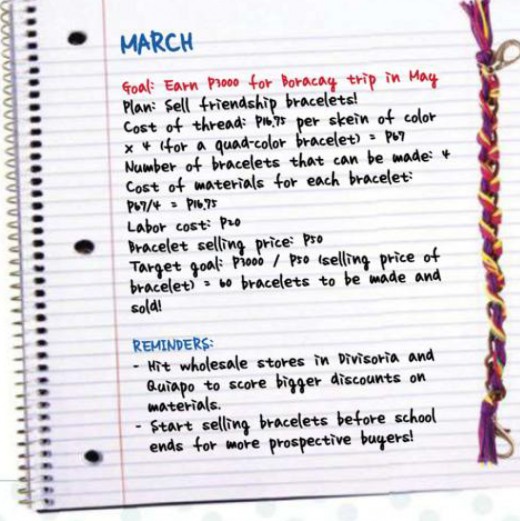 MARCH
Goal: Earn P3000 for Boracay trip in May
Plan: Sell friendship bracelets!
Cost of thread: P16.75 per skein of color
x 4 (for a quad-color bracelet) = P67
Number of bracelets that can be made: 4
Cost of materials for each bracelet:
P67/4 = P16.75
Labor cost: P20
Bracelet selling price: P50
Target goal: P3000 / P50 (selling price of
bracelet) = 60 bracelets to be made and
sold!
REMINDERS:
- Hit wholesale stores in Divisoria and
Quiapo to score bigger discounts on
materials.
- Start selling bracelets before school
ends for more prospective buyers!